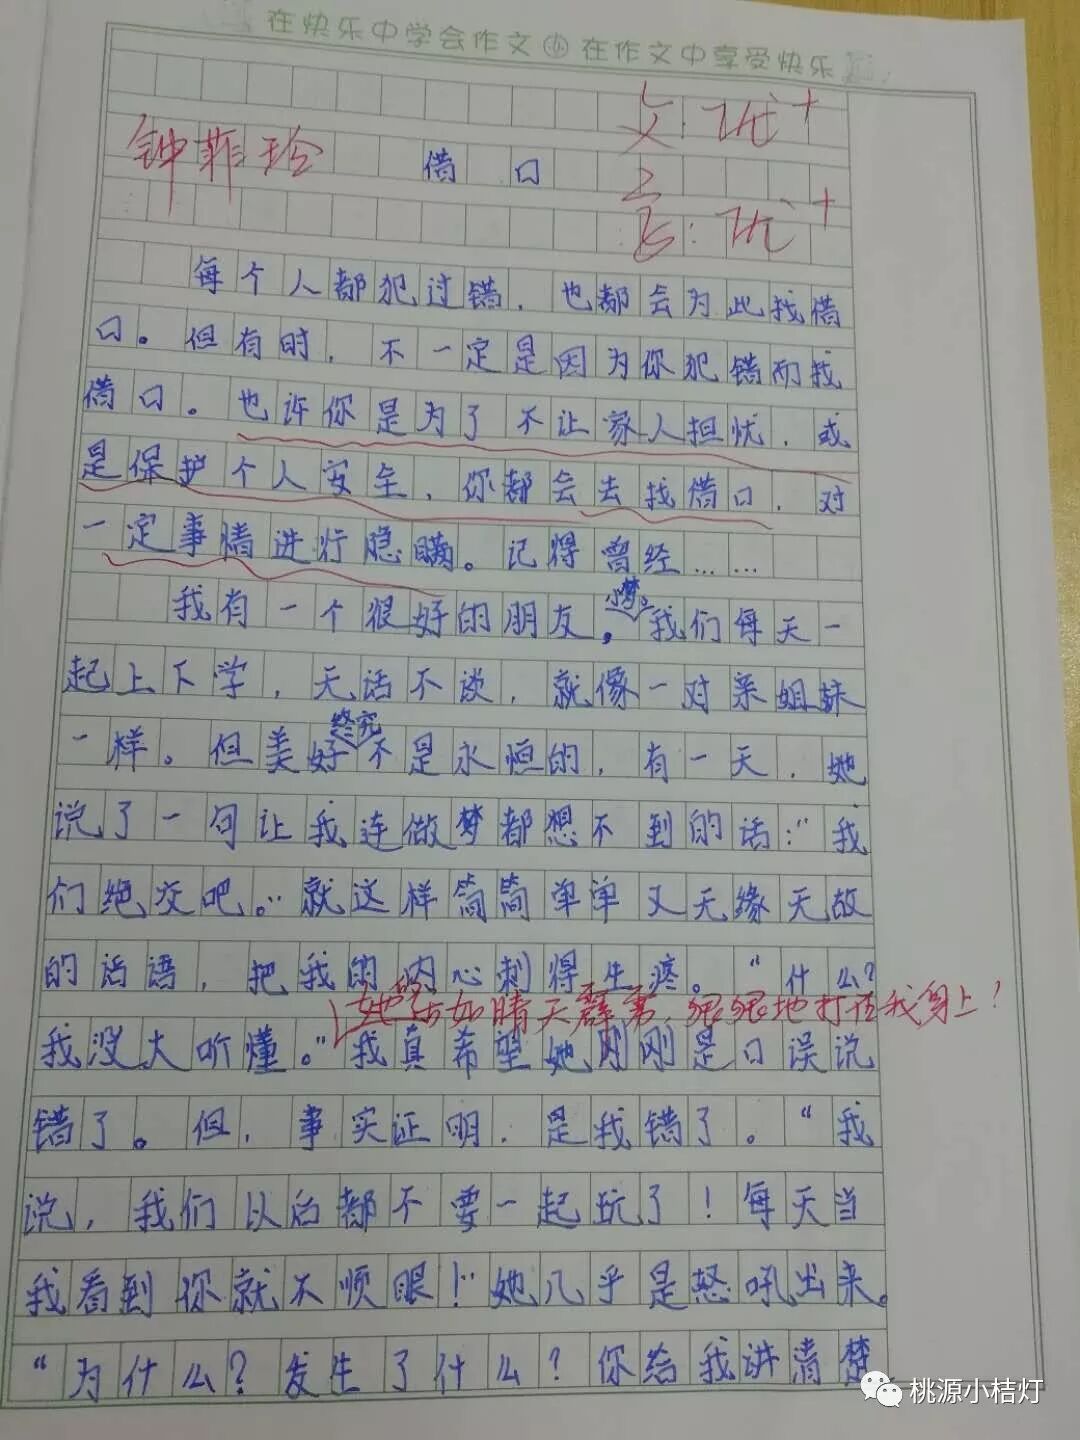 在快乐中学会作文 在作文中享受快乐
文:优+
钟菲玲 借口
书:优+
每个人都犯过错，也都会为此找借
口。但有时，不一定是因为你犯错而找
借口。也许你是为了不让家人担忧，或
是保护个人安全，你都会去找借口，对
一定事情进行隐瞒。记得曾经……
我有一个很好的朋友小梦。我们每天一
起上下学，无话不谈，就像一对亲姐妹
一样。但美好终究不是永恒的，有一天，她
说了一句让我连做梦都想不到的话：“我
们绝交吧。”就这样简简单单又无缘无故
的话语，把我的内心刺得生疼。“什么？
她的话如晴天霹雳，狠狠地打在我身上！
我没大听懂。”我真希望她刚刚是口误说
错了。但，事实证明，是我错了。“我
说，我们以后都不要一起玩了！每天当
我看到你就不顺眼！”她几乎是怒吼出来。
“为什么？发生了什么？你给我讲清楚
桃源小桔灯